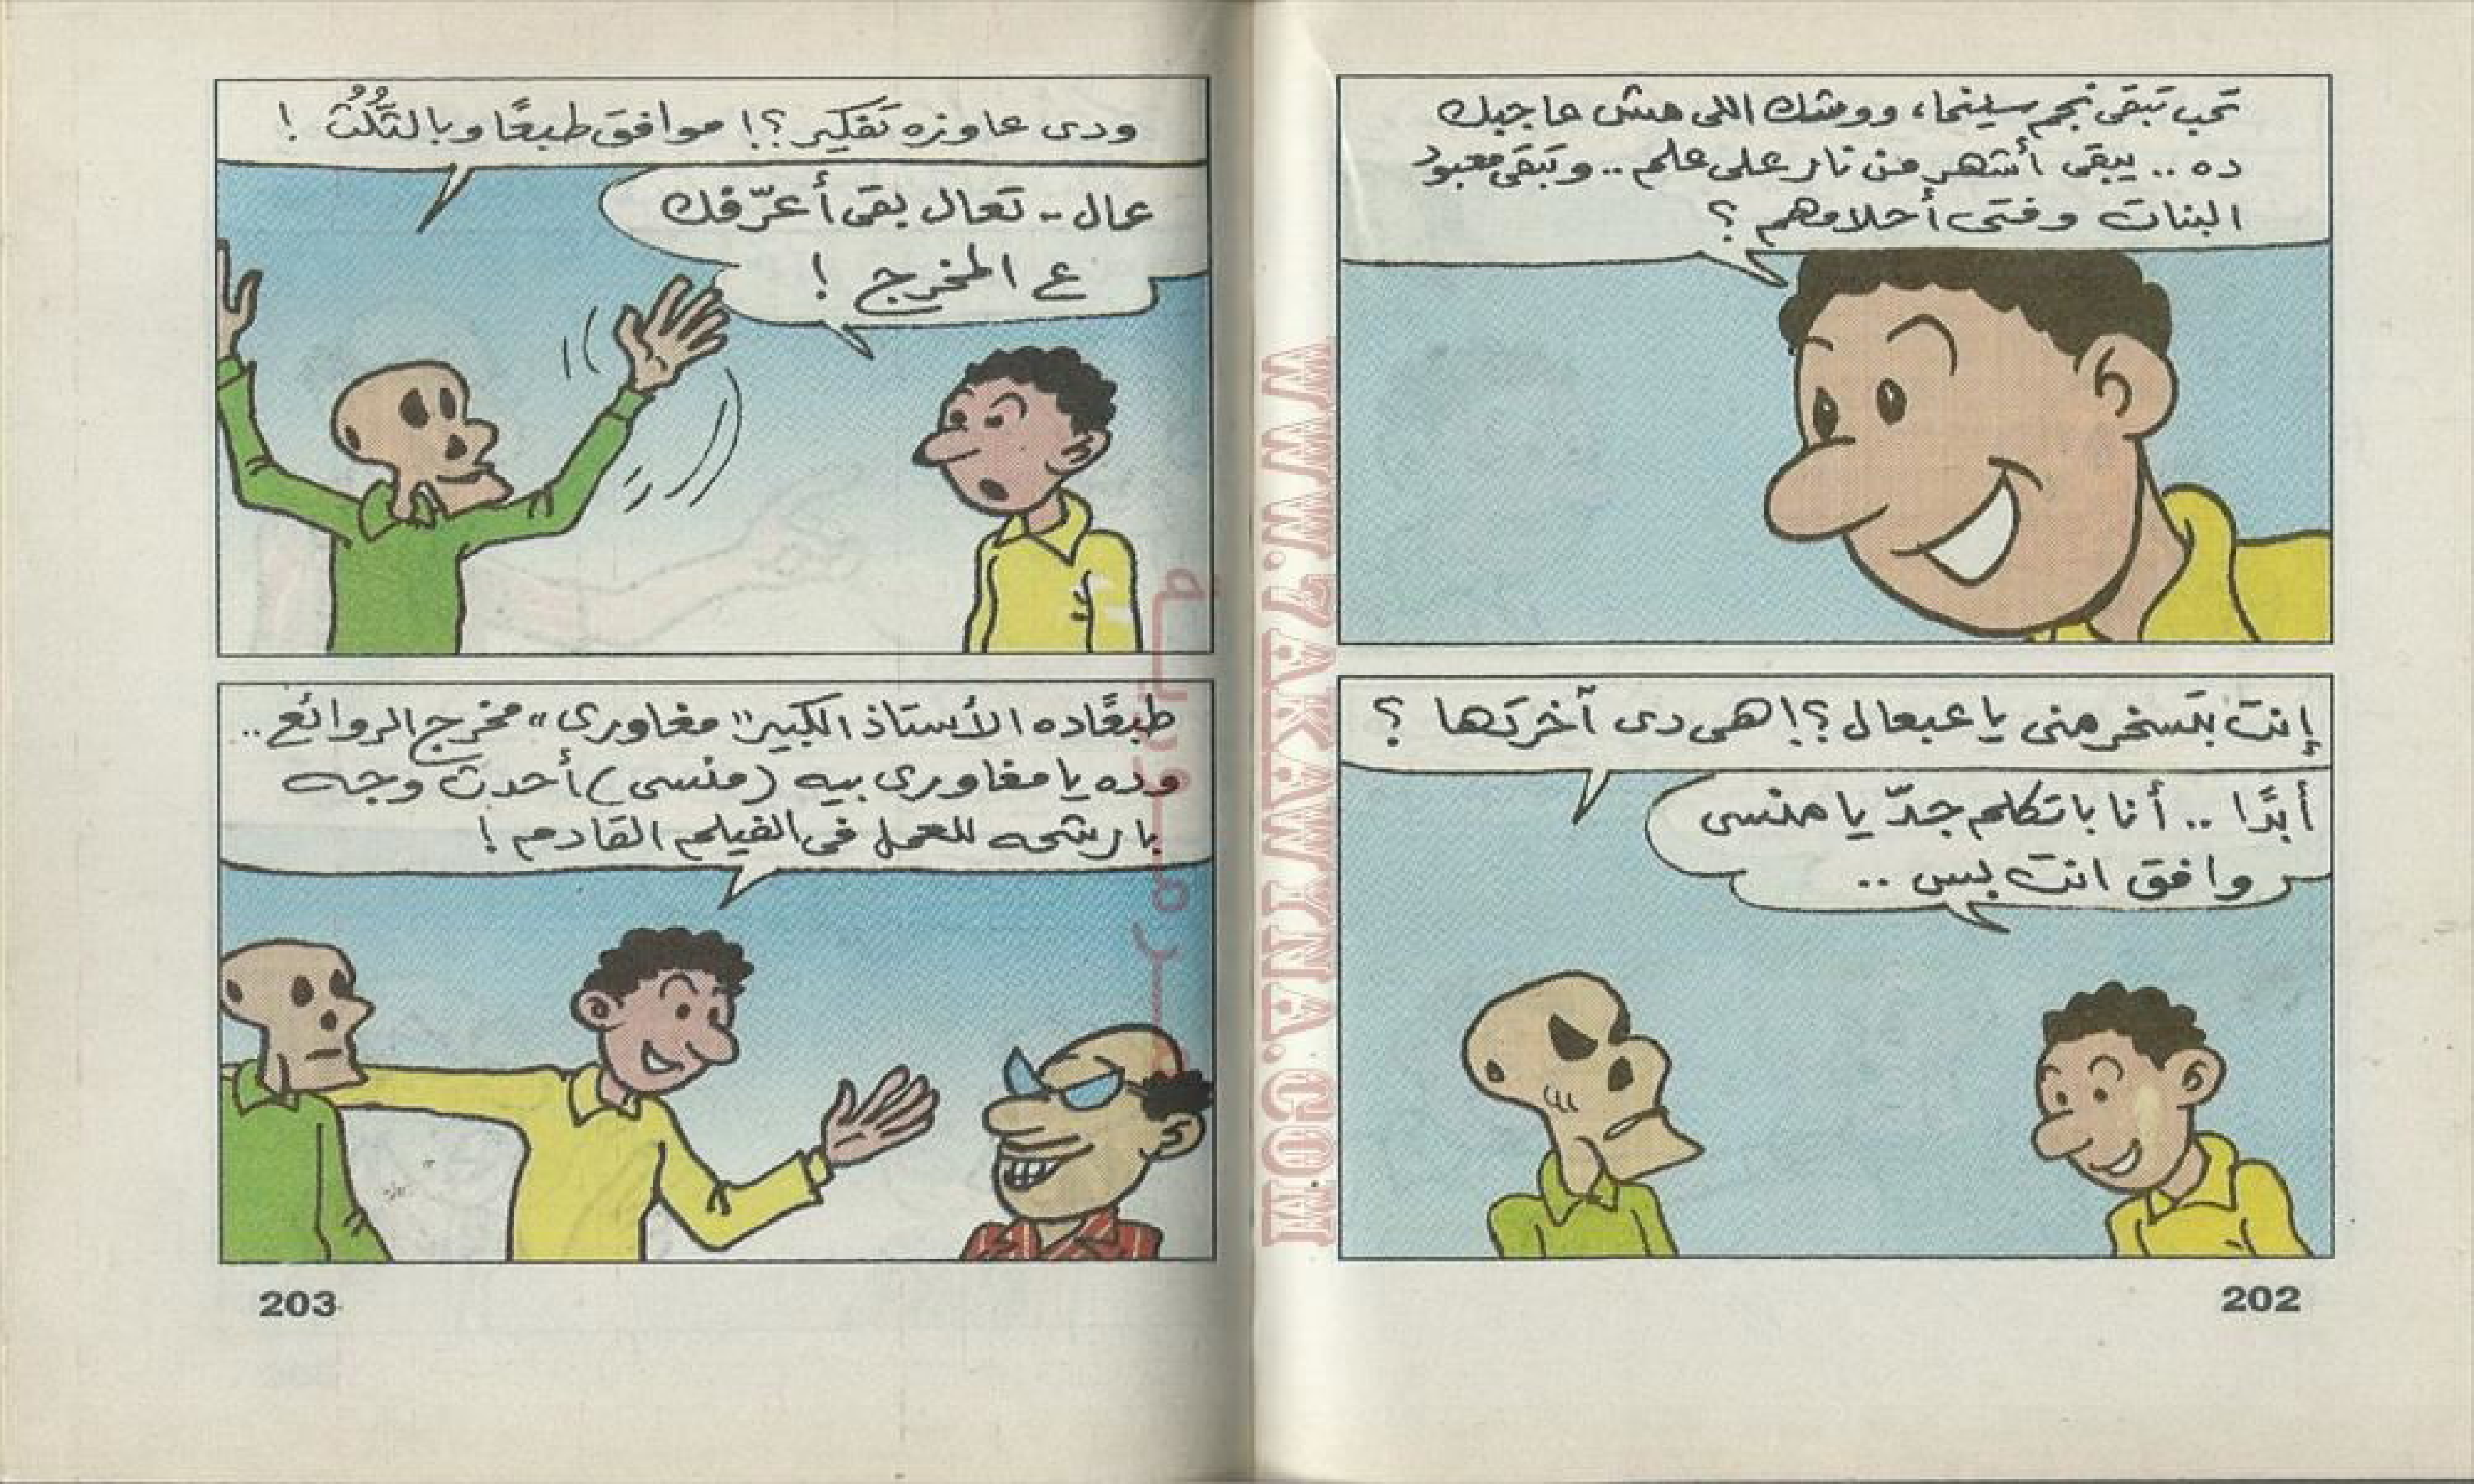 تحب تبقى نجم سينما، ووشك اللى مش عاجبك
ده .. يبقى أشهر من نار على علم .. وتبقى معبود
البنات وفتى أحلامهم ؟
إنت بتسخر منى يا عبعال ؟! هى دى آخرتها ؟
أبدًا .. أنا باتكلم جدّ يا منسى
وافق انت بس ..
202
ودى عاوزه تفكير ؟! موافق طبعًا وبالتلُت !
عال - تعال بقى أعرّفك
ع المخرج !
طبعًا ده الأستاذ الكبير "مغاورى" مخرج الروائع ..
وده يا مغاورى بيه (منسى) أحدث وجه
بارشحه للعمل فى الفيلم القادم !
203
WWW.7AKAWYNA.COM